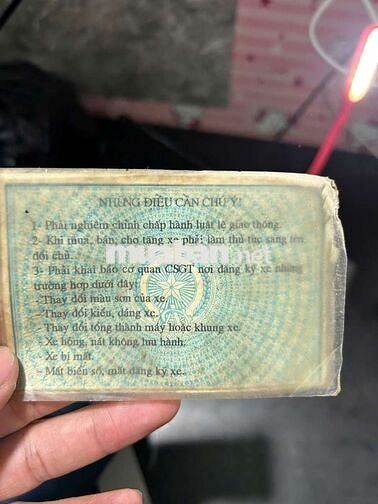 NHỮNG ĐIỀU CẦN CHÚ Ý!
1- Phải nghiêm chỉnh chấp hành luật lệ giao thông.
2- Khi mua, bán, cho tặng xe phải làm thủ tục sang tên
đổi chủ.
3- Phải khai báo cơ quan CSGT nơi đăng ký xe những
trường hợp dưới đây:
- Thay đổi màu sơn của xe.
- Thay đổi kiểu, dáng xe.
- Thay đổi tổng thành máy hoặc khung xe.
- Xe hỏng, nát không lưu hành.
- Xe bị mất.
- Mất biển số, mất đăng ký xe.
muaban.net